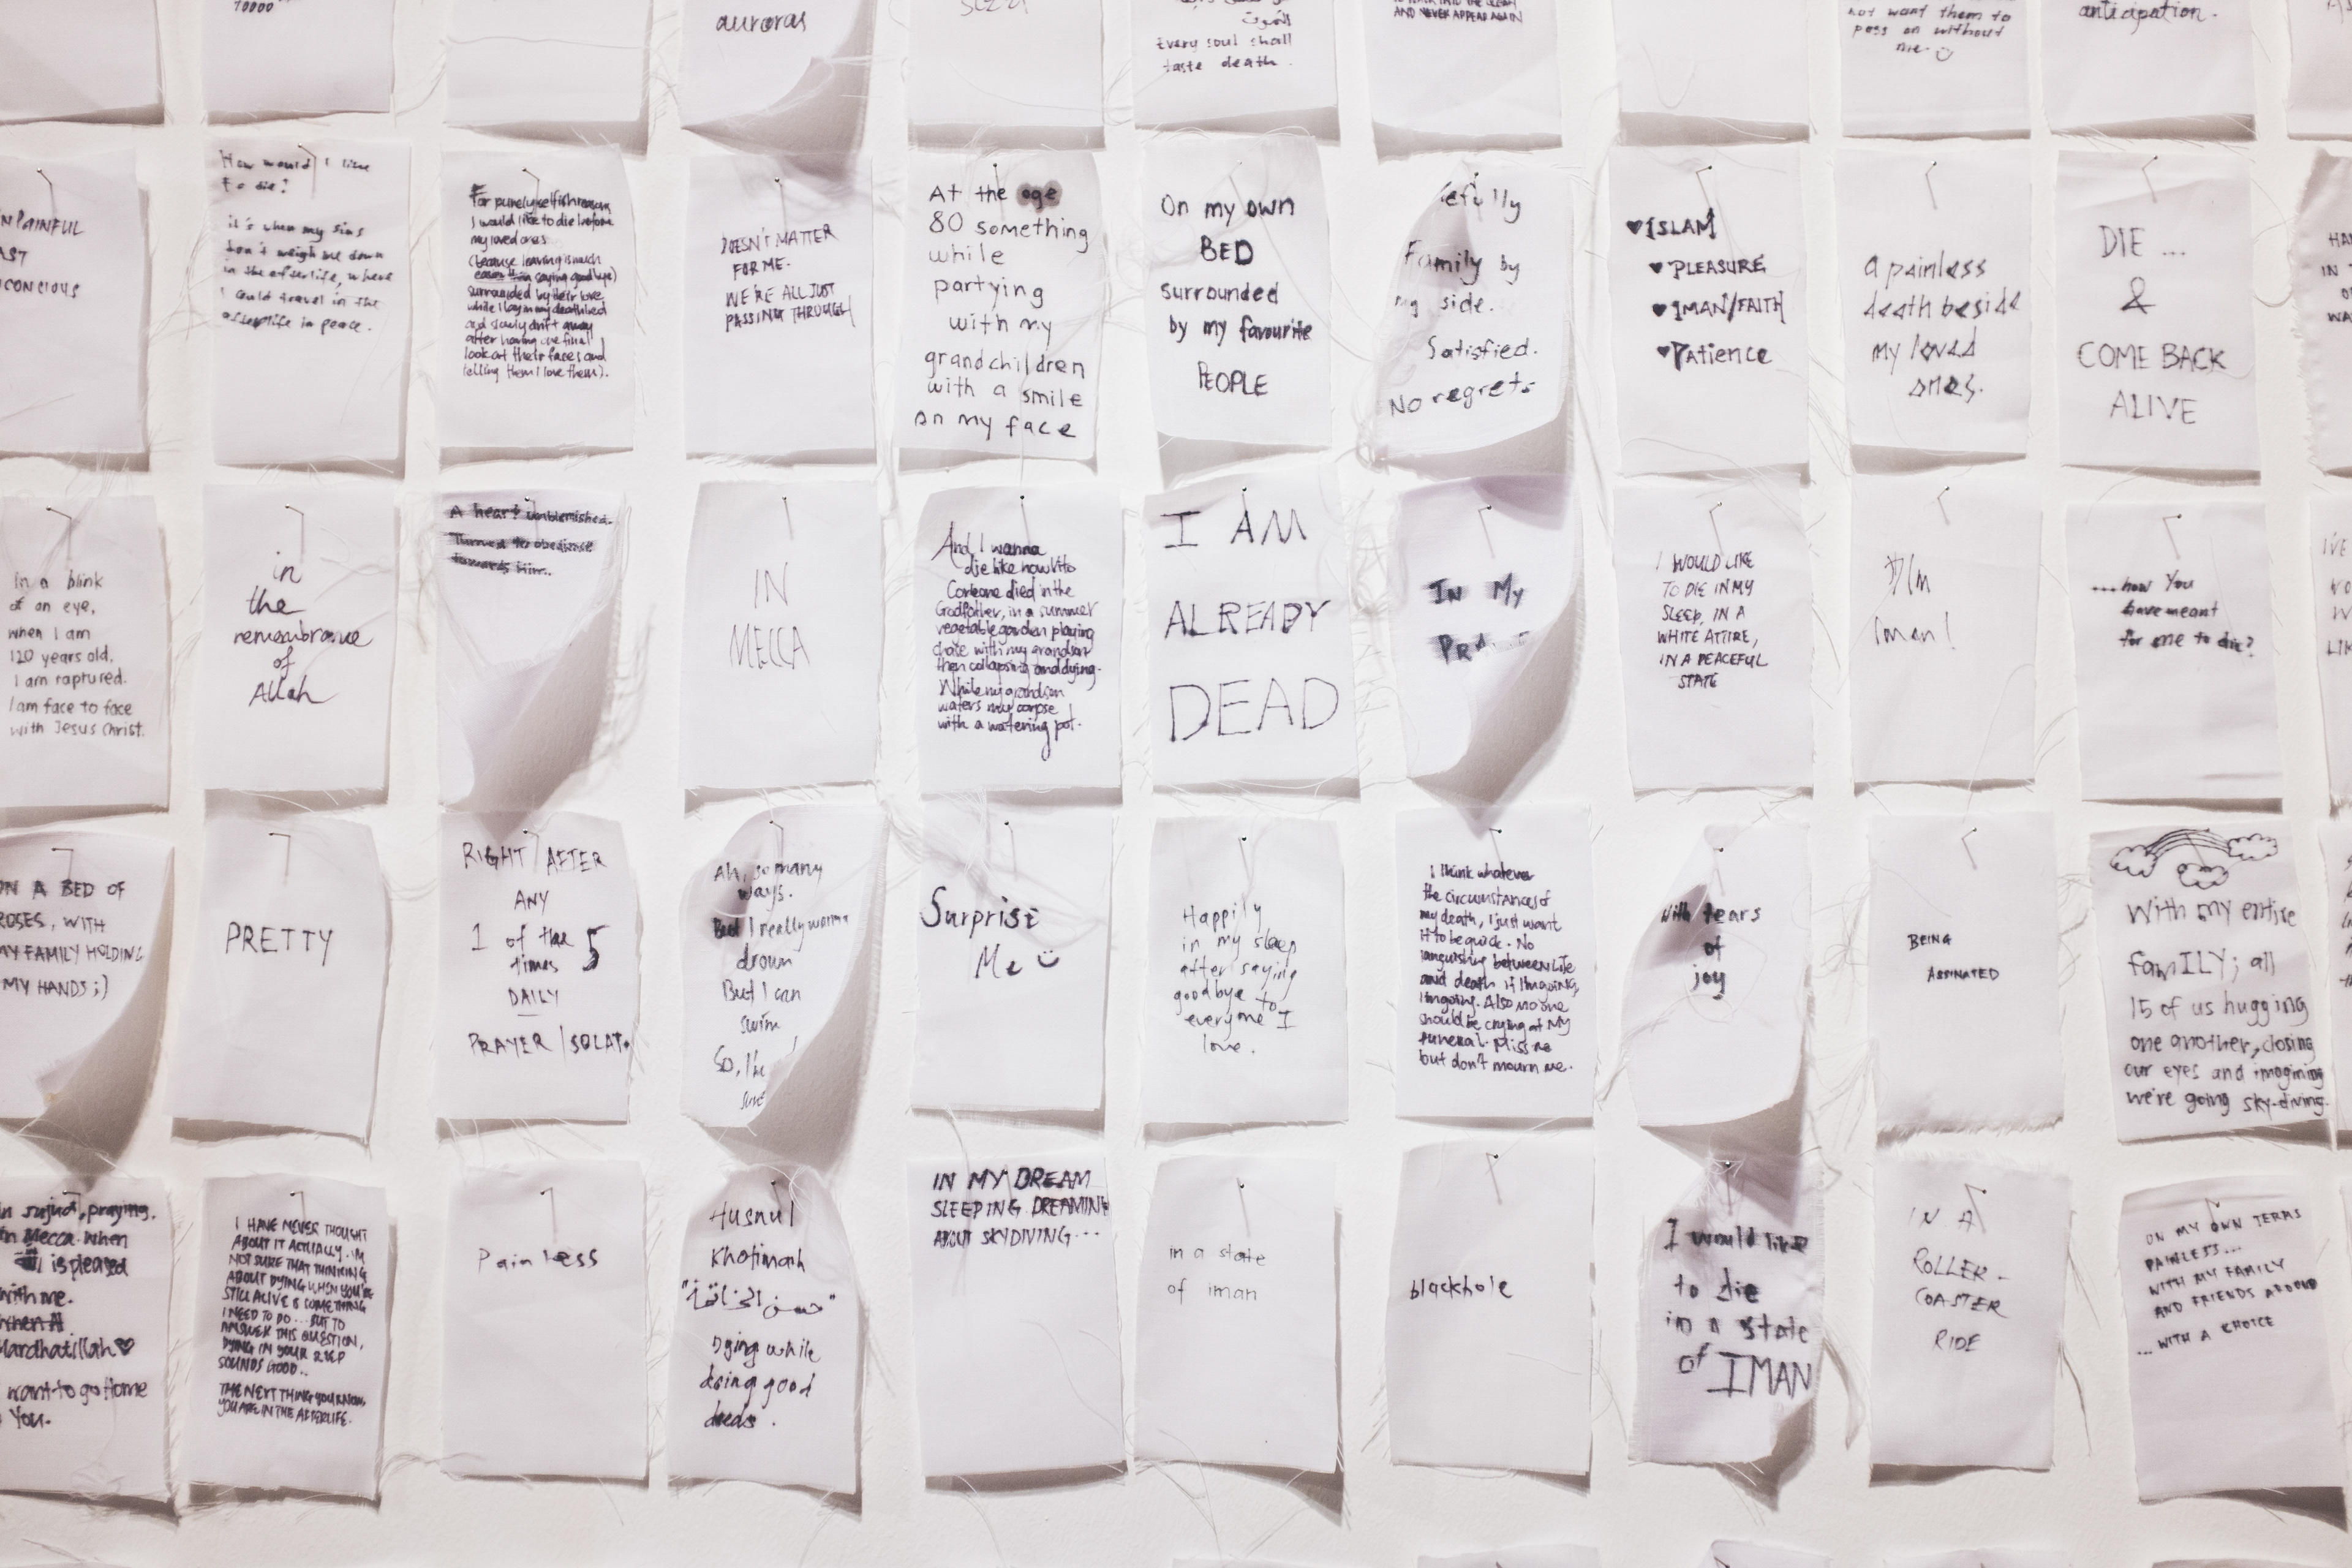 10000
auroras
Every soul shall
taste death.
AND NEVER APPEAR AGAIN
not want them to
pass on without
me.
anticipation.
PAINFUL
How would I like
to die?
it's when my sins
don't weigh me down
in the afterlife, where
I could travel in the
afterlife in peace.
For purely selfish reasons
I would like to die before
my loved ones
(because leaving is much
easier than saying goodbye)
surrounded by their love
while I lay on my deathbed
and slowly drift away
after having one final
look at their faces and
telling them I love them).
DOESN'T MATTER
FOR ME.
WE'RE ALL JUST
PASSING THROUGH
At the age
80 something
while
partying
with my
grandchildren
with a smile
on my face
On my own
BED
surrounded
by my favourite
PEOPLE
efully
Family by
my side.
Satisfied.
No regrets
♥ ISLAM
♥ PLEASURE
♥ IMAN/FAITH
♥ Patience
a painless
death beside
my loved
ones.
DIE ...
&
COME BACK
ALIVE
In a blink
of an eye,
when I am
120 years old.
I am raptured.
I am face to face
with Jesus Christ.
in
the
remembrance
of
Allah
A heart unblemished.
Turned to obedience
towards Him..
IN
MECCA
And I wanna
die like how Vito
Corleone died in the
Godfather, in a summer
vegetable garden playing
chase with my grandson
then collapsing and dying.
While my grandson
waters my corpse
with a watering pot.
I AM
ALREADY
DEAD
IN MY
I WOULD LIKE
TO DIE IN MY
SLEEP, IN A
WHITE ATTIRE,
IN A PEACEFUL
STATE
Iman!
...how You
have meant
for me to die?
I'VE
ON A BED OF
ROSES, WITH
MY FAMILY HOLDING
MY HANDS ;)
PRETTY
RIGHT AFTER
ANY
1 of the 5
times
DAILY
PRAYER / SOLAT.
Ah, so many
ways.
But I really wanna
drown
But I can
swim
So,
Surprise
Me
Happily
in my sleep
after saying
goodbye to
everyone I
love.
I think whatever
the circumstances of
my death, I just want
it to be quick. No
languishing between life
and death. If I'm going,
I'm going. Also no one
should be crying at MY
funeral. Miss me
but don't mourn me.
With tears
of
joy
BEING
ASSINATED
With my entire
famILY; all
15 of us hugging
one another, closing
our eyes and imagining
we're going sky-diving.
in sujud, praying.
in Mecca. when
is pleased
with me.
when
Mardhatillah ♥
want to go Home
You.
I HAVE NEVER THOUGHT
ABOUT IT ACTUALLY. I'M
NOT SURE THAT THINKING
ABOUT DYING WHEN YOU'RE
STILL ALIVE IS SOMETHING
I NEED TO DO... BUT TO
ANSWER THIS QUESTION,
DYING IN YOUR SLEEP
SOUNDS GOOD..
THE NEXT THING YOU KNOW,
YOU ARE IN THE AFTERLIFE.
Painless
Husnul
Khotimah
"حسن الخاتمة"
Dying while
doing good
deeds.
IN MY DREAM
SLEEPING DREAMING
ABOUT SKYDIVING...
in a state
of iman
blackhole
I would like
to die
in a state
of IMAN
IN A
ROLLER-
COASTER
RIDE
ON MY OWN TERMS
PAINLESS...
WITH MY FAMILY
AND FRIENDS AROUND
... WITH A CHOICE